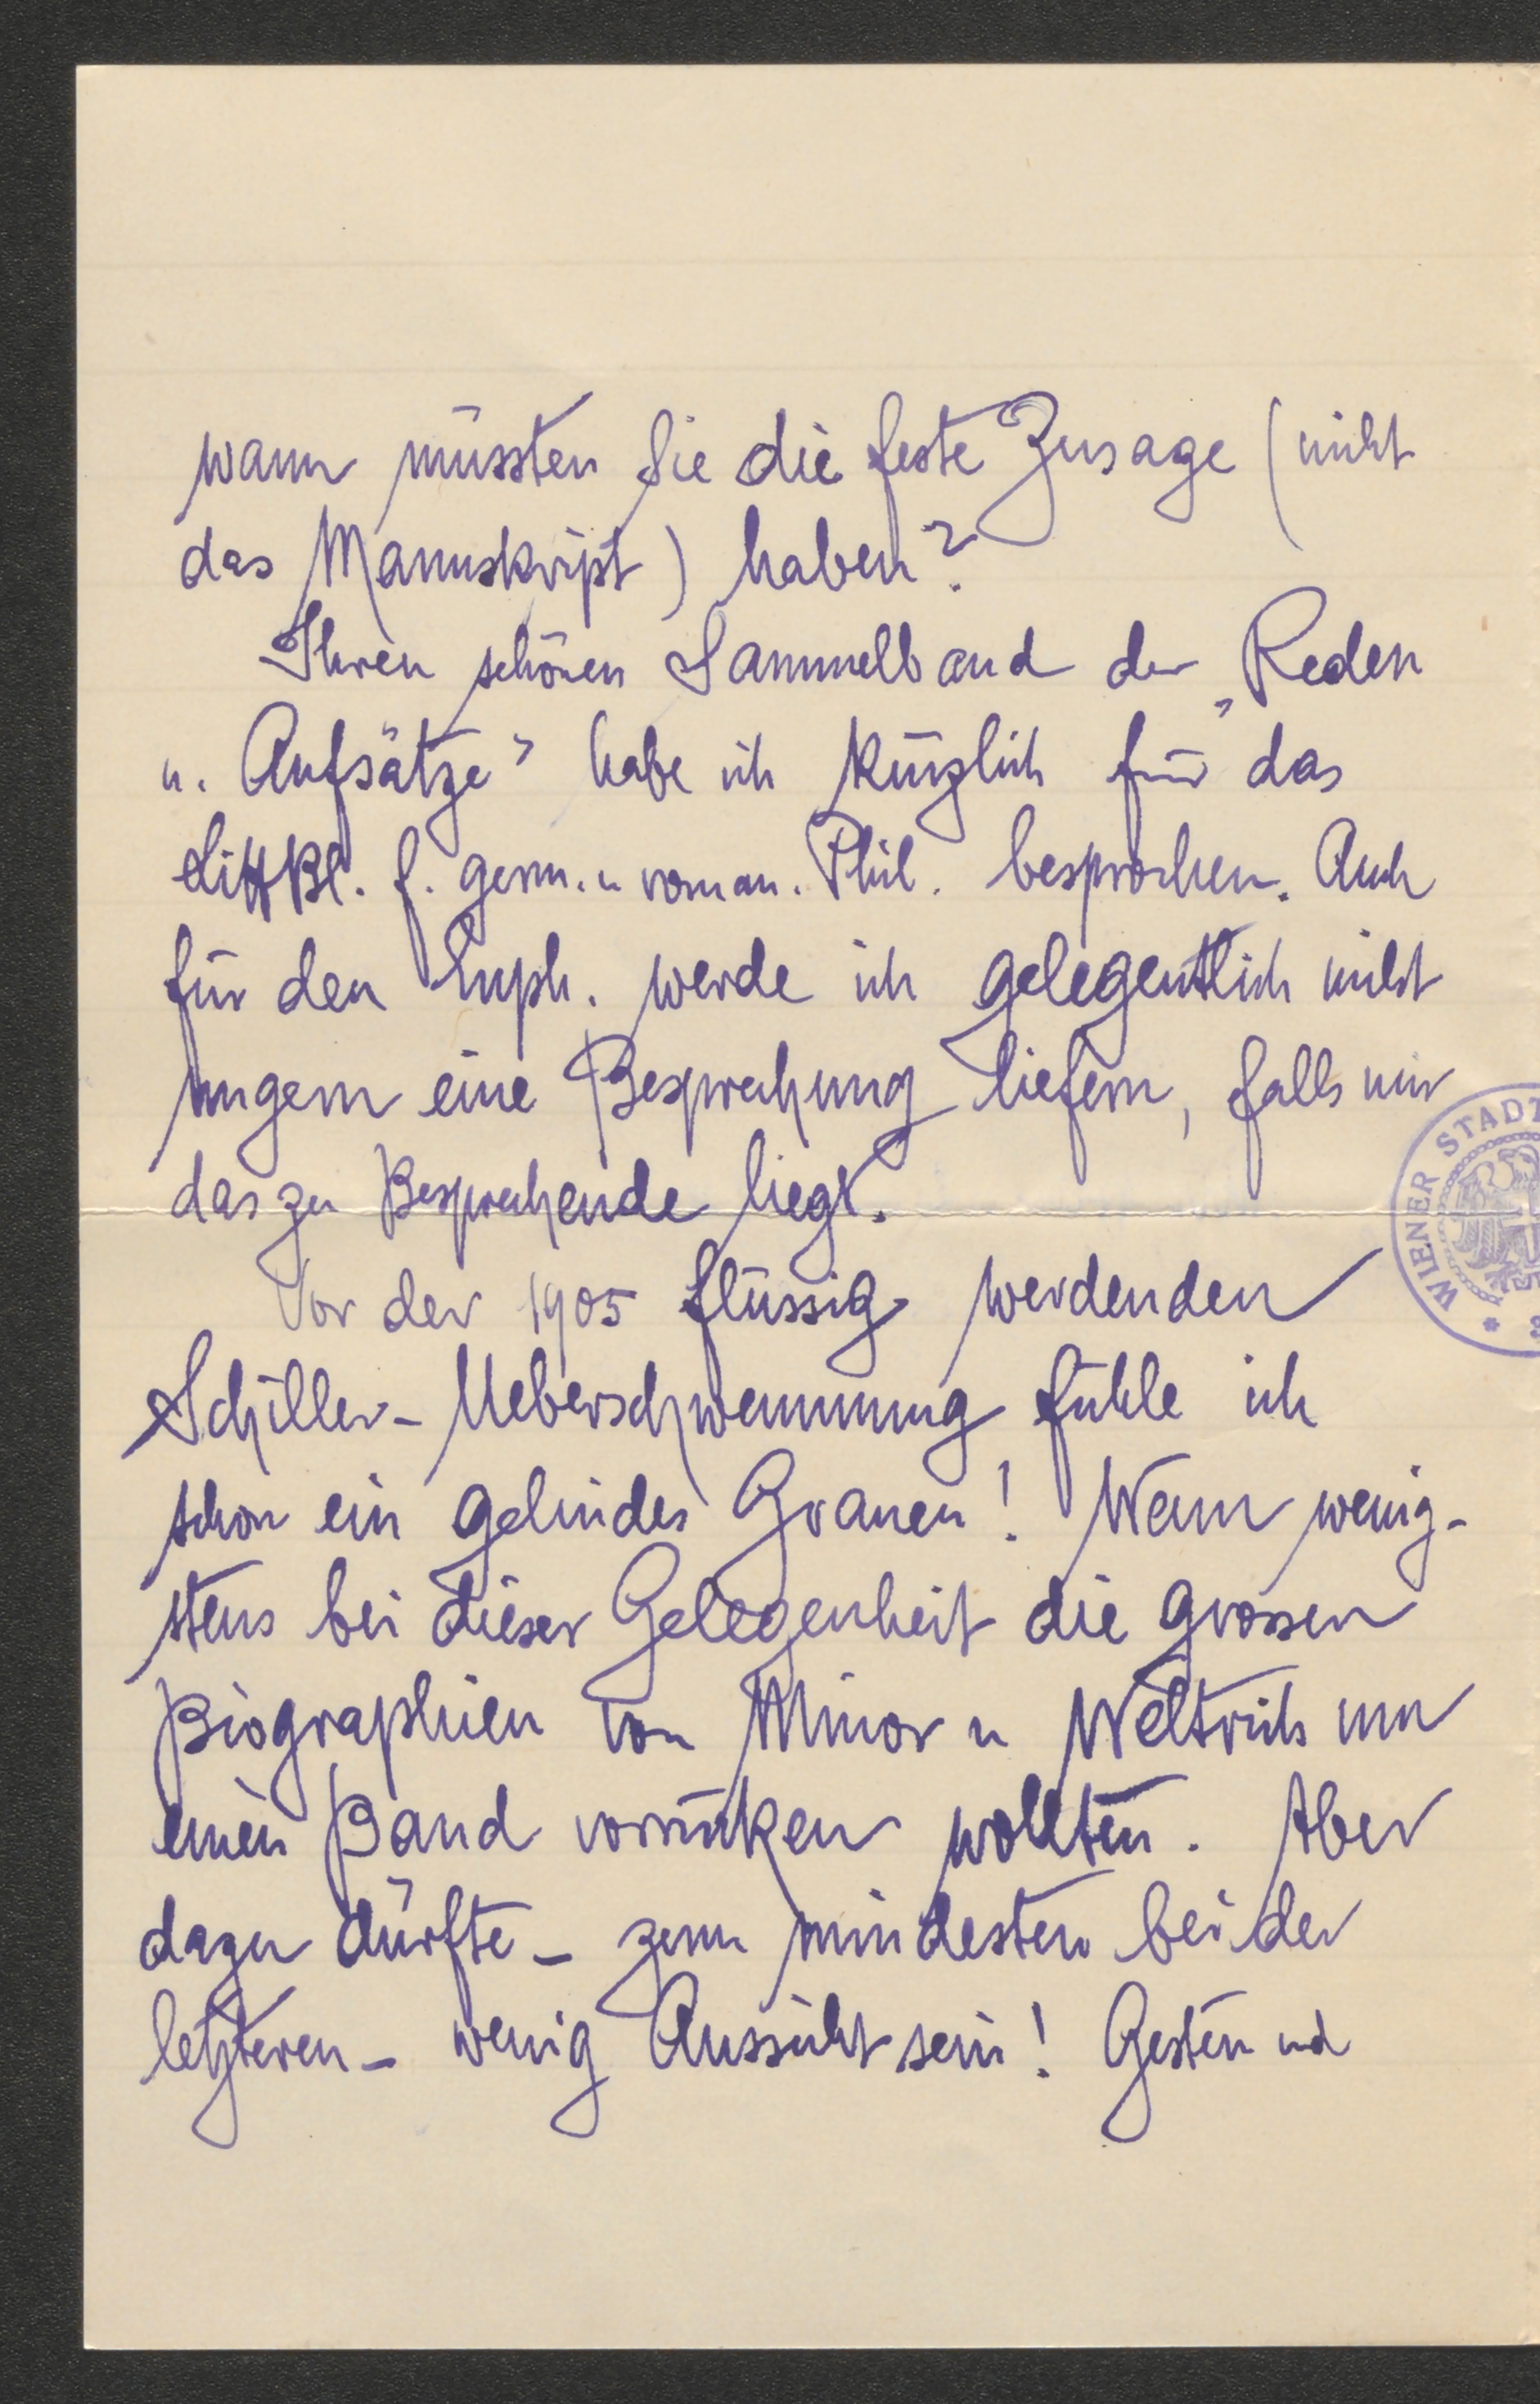 wann müssten Sie die feste Zusage (nicht
das Manuskript) haben?
Ihren schönen Sammelband der „Reden
u. Aufsätze“ habe ich kürzlich für das
LittBl. f. germ. u roman. Phil. besprochen. Auch
für den Euph. werde ich gelegentlich nicht
ungern eine Besprechung liefern, falls mir
das zu Besprechende liegt.
Vor der 1905 flüssig werdenden
Schiller-Ueberschwemmung fühle ich
schon ein gelindes Grauen! Wenn wenig-
stens bei dieser Gelegenheit die grossen
Biographien von Minor u Weltrich um
einen Band vorrücken wollten. Aber
dazu dürfte - zum mindesten bei der
letzteren - wenig Aussicht sein! Gestern und
WIENER STADT